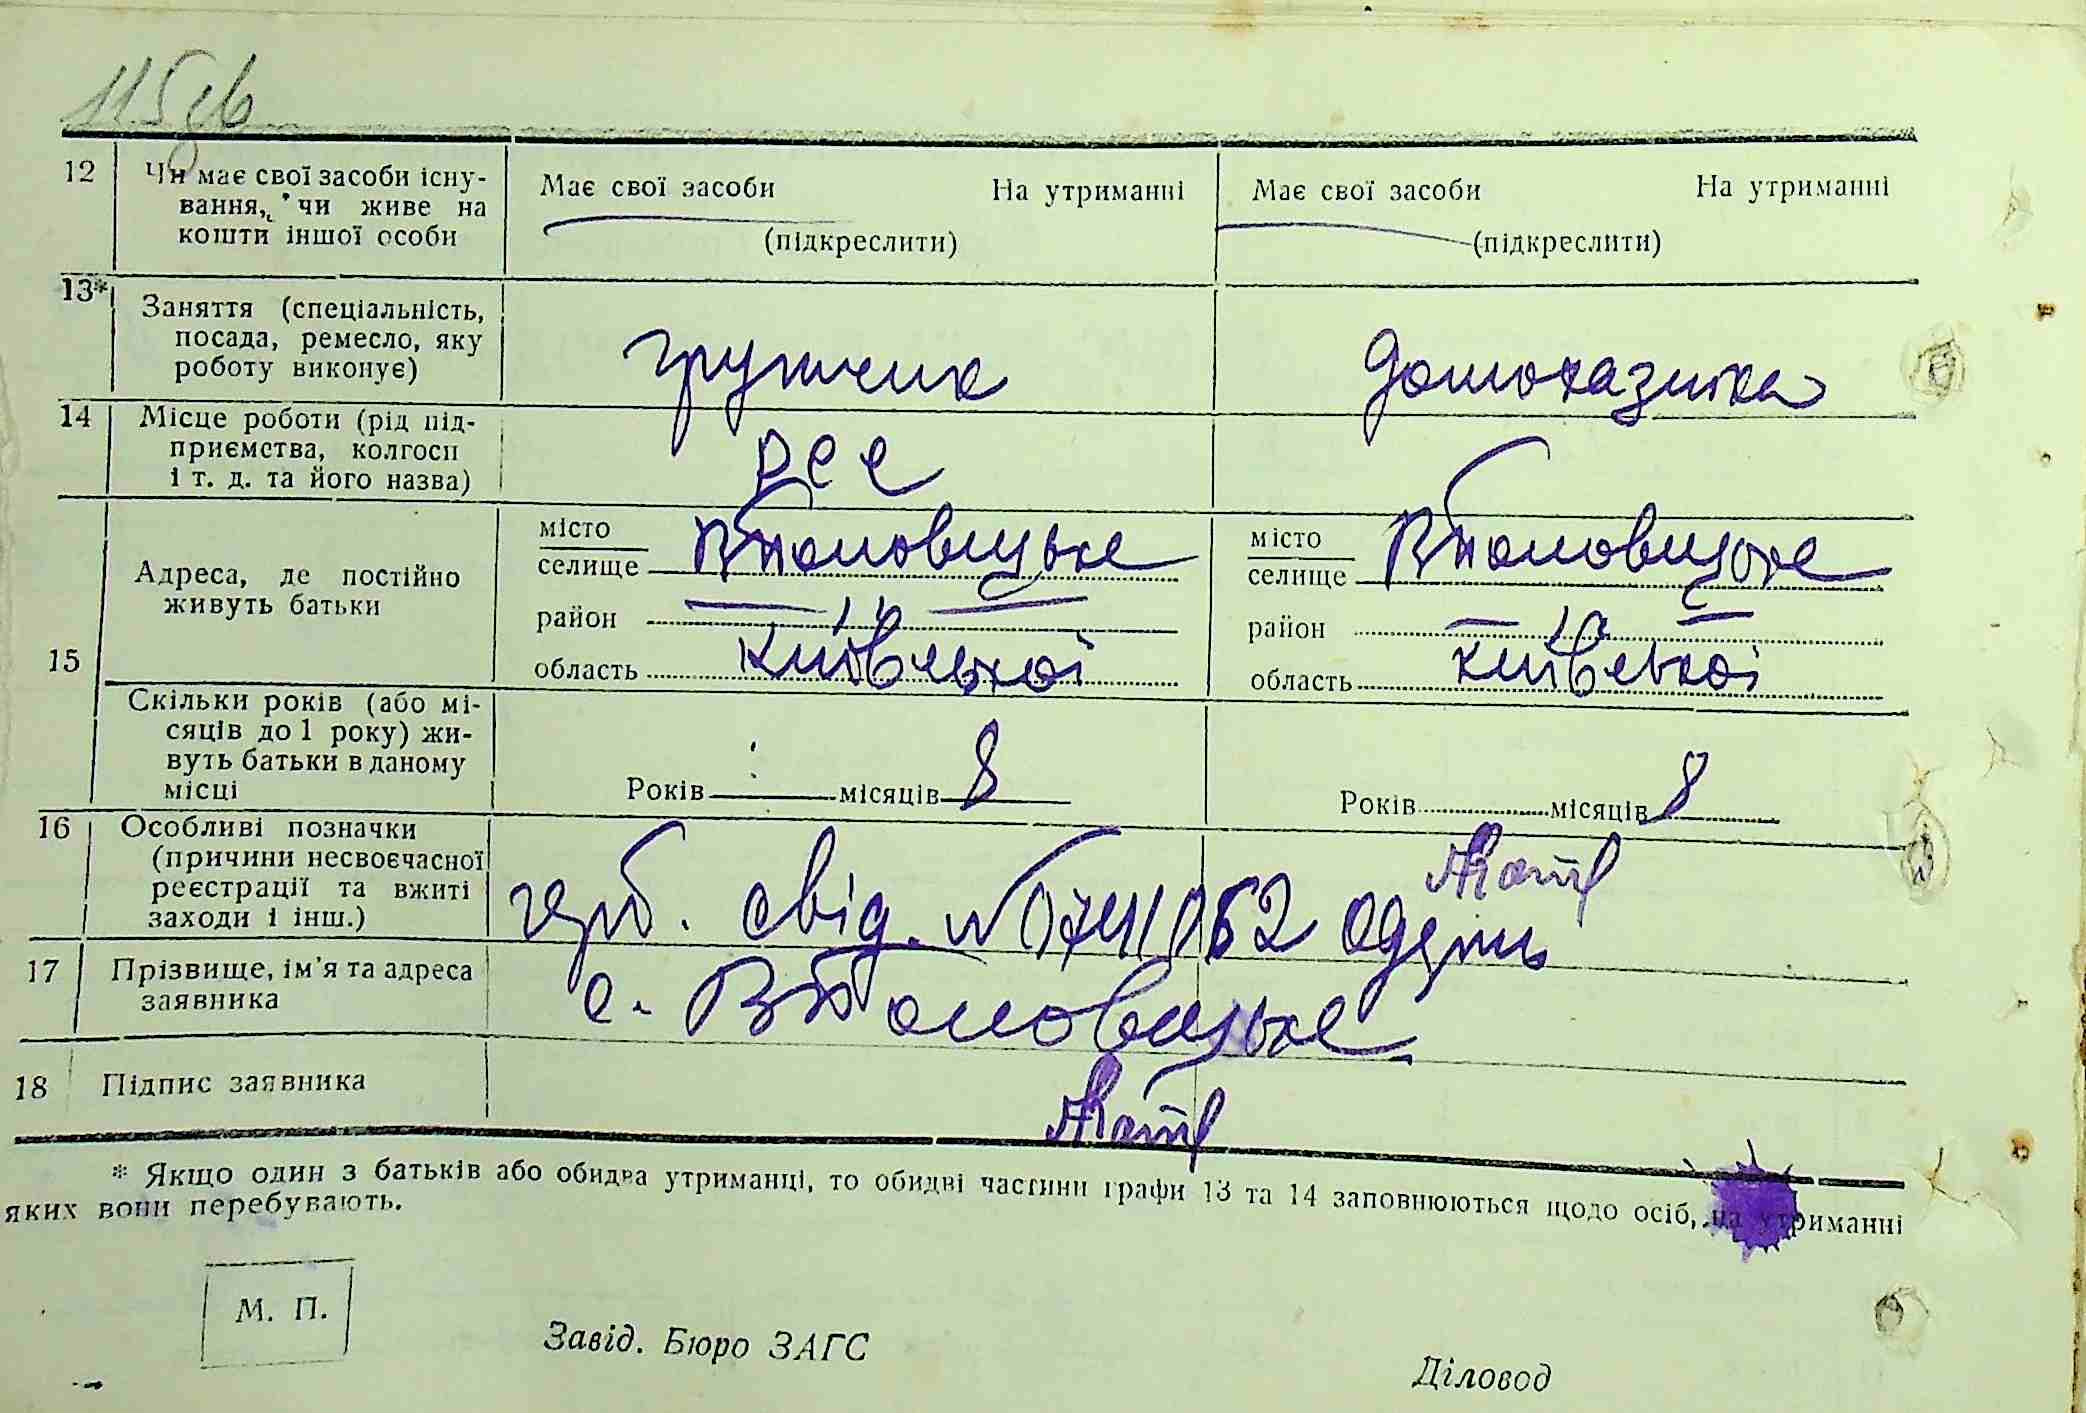 115
12 Чи має свої засоби існу-
вання, чи живе на
кошти іншої особи
Має свої засоби На утриманні
(підкреслити)
Має свої засоби На утриманні
(підкреслити)
13* Заняття (спеціальність,
посада, ремесло, яку
роботу виконує)
грузчик
домохазяйка
14 Місце роботи (рід під-
приємства, колгосп
і т. д. та його назва)
15 Адреса, де постійно
живуть батьки
місто
селище
район
область Київської
місто
селище
район
область Київської
Скільки років (або мі-
сяців до 1 року) жи-
вуть батьки в даному
місці
Років місяців 8
Років місяців 8
16 Особливі позначки
(причини несвоєчасної
реєстрації та вжиті
заходи і інш.)
герб. свід. №
17 Прізвище, ім'я та адреса
заявника
с.
18 Підпис заявника
* Якщо один з батьків або обидва утриманці, то обидві частини графи 13 та 14 заповнюються щодо осіб, на утриманні
яких вони перебувають.
М. П.
Завід. Бюро ЗАГС
Діловод